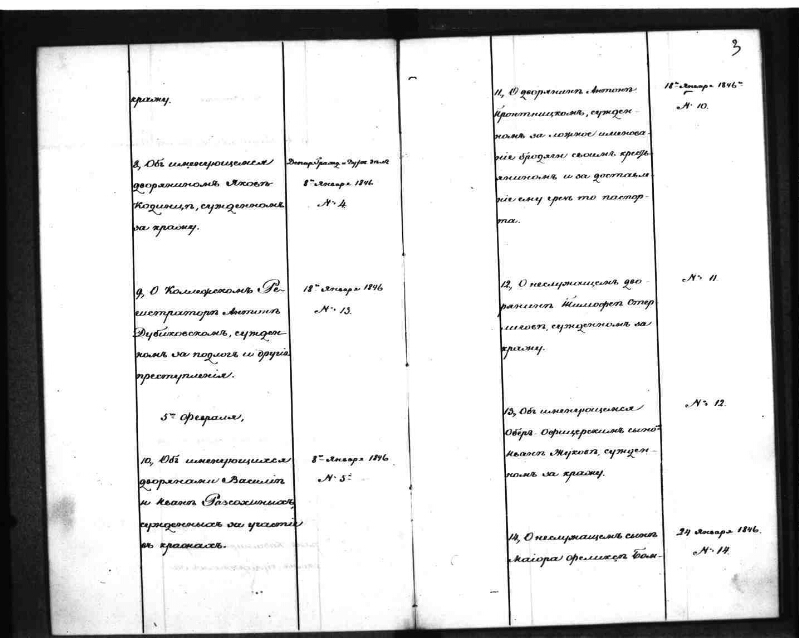 кражу.
8, Объ именующемся
дворяниномъ Яковѣ
Кодинцѣ, сужденномъ
за кражу.
8го Января 1846
№ 4.
9, О Коллежскомъ Ре-
гистраторѣ Антонѣ
Дубиковскомъ, сужден-
номъ за подлогъ и другія
преступленія.
18го Января 1846
№ 13.
5го Февраля,
10, Объ именующихся
дворянами Василіѣ
и Иванѣ Разсохиныхъ,
сужденныхъ за участіе
въ кражахъ.
8го Января 1846
№ 5
3
11, О дворянинѣ Антонѣ
Кронтницкомъ, сужден-
номъ за ложное именова-
ніе бродяги своимъ кресть-
яниномъ и за доставле-
ніе ему чрезъ то паспор-
та.
18го Января 1846го
№ 10.
12, О неслужащемъ дво-
рянинѣ Тимофеѣ Стер-
лиговѣ, сужденномъ за
кражу.
№ 11.
13, Объ именующемся
Оберъ-Офицерскимъ сыномъ
Иванѣ Жуковѣ, сужден-
номъ за кражу.
№ 12.
14, О неслужащемъ сынѣ
Маіора Феликсѣ Бом-
24 Января 1846.
№ 14.